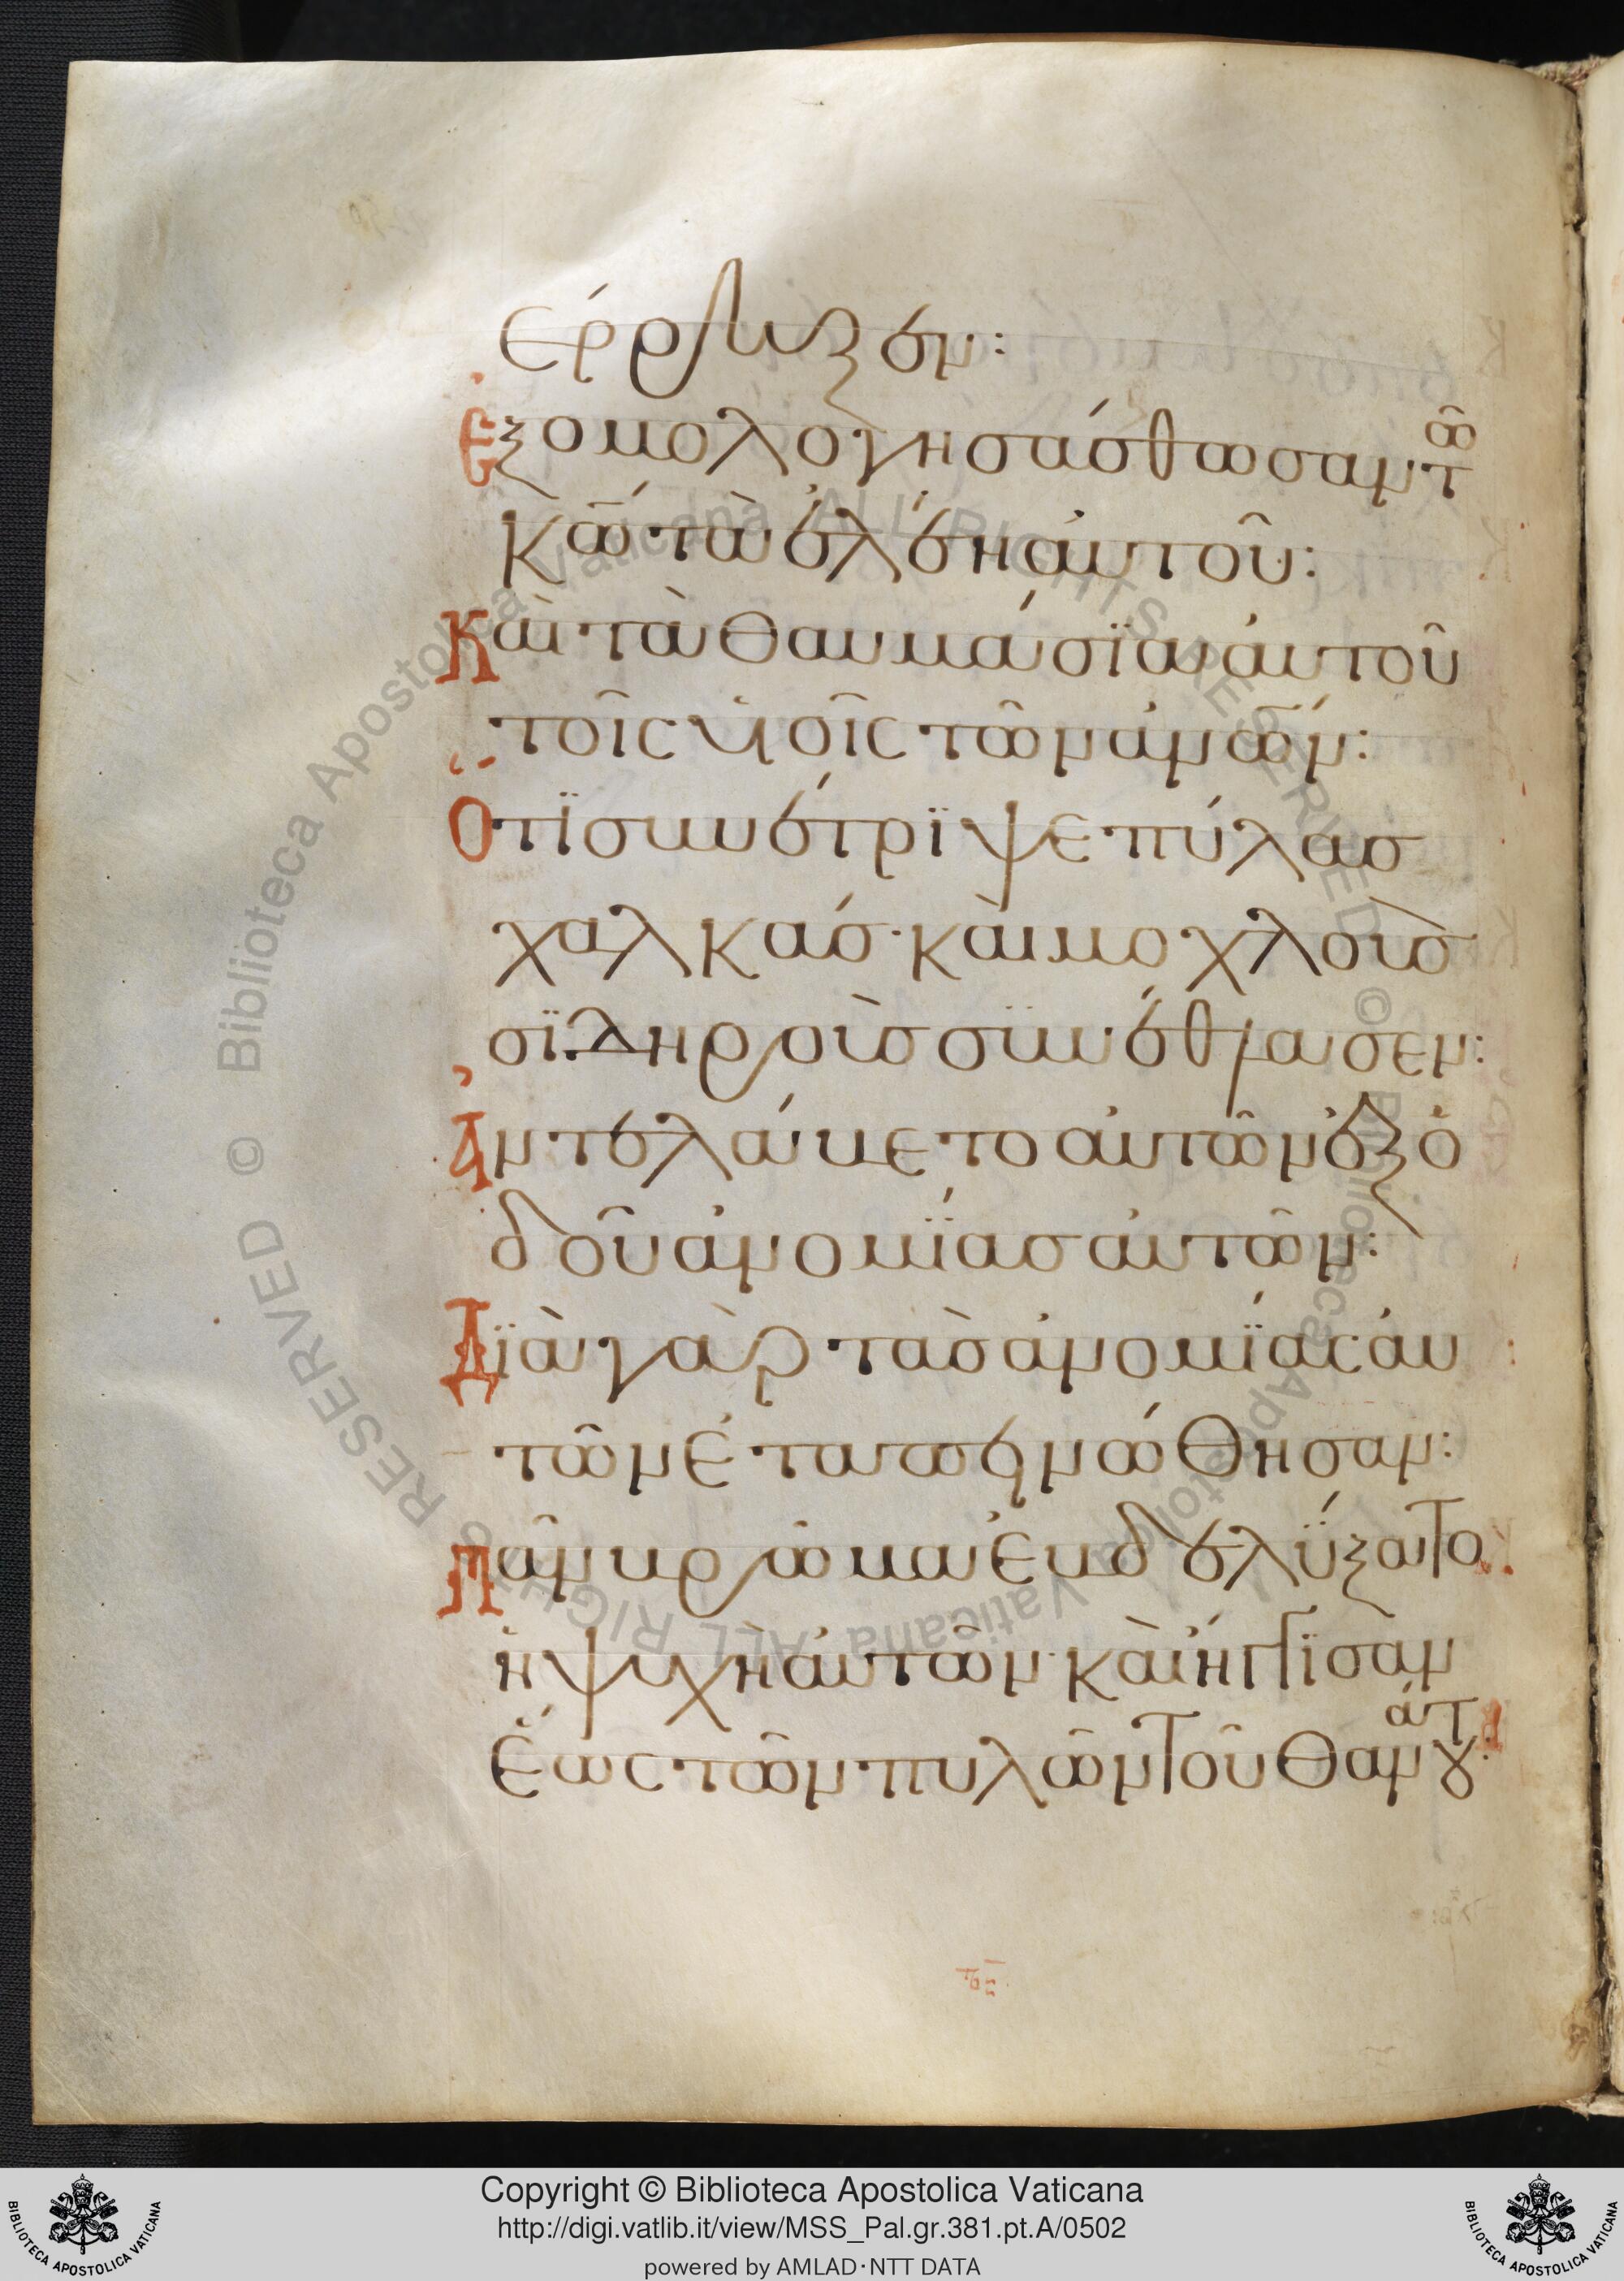 ἐρρυξεν:
Ἐξομολογησάσθωσαν τῶ
κῶ τὰ ἐλέη αὐτοῦ:
Καὶ τὰ θαυμάσϊα αὐτοῦ
τοῖς υἱοῖς τῶν ἀνῶν:
Ὅτϊ συνέτρϊψε πύλας
χαλκάσ· καὶ μοχλοὺσ
σϊδηροὺσ συνέθλασεν:
Ἀντελάβετο αὐτῶν ἐξ ὁ
δοῦ ἀνομΐασ αὐτῶν:
Δϊὰ γὰρ τὰσ ἀνομΐας αὐ
τῶν ἐταπεινώθησαν:
Πᾶν βρῶμα ἐβδελύξατο
ἡ ψυχὴ αὐτῶν· καὶ ἤγγϊσαν
ἕως τῶν πυλῶν τοῦ θανάτου:
BIBLIOTECA APOSTOLICA VATICANA
Copyright © Biblioteca Apostolica Vaticana
http://digi.vatlib.it/view/MSS_Pal.gr.381.pt.A/0502
powered by AMLAD·NTT DATA
BIBLIOTECA APOSTOLICA VATICANA
© Biblioteca Apostolica Vaticana ALL RIGHTS RESERVED © Biblioteca Apostolica Vaticana ALL RIGHTS RESERVED